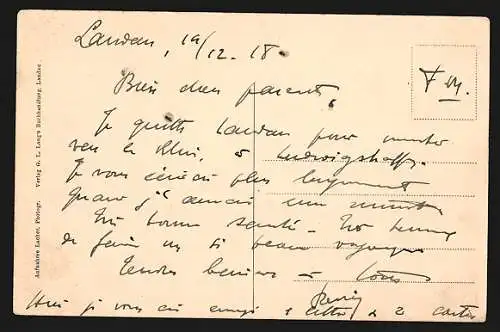 Landau, 19/12.18.
F.M.
Bien chers parents,
Je quitte Landau pour monter
vers le Rhin, à Ludwigshafen.
Je vous écrirai plus longuement
Quand j'aurai une minute
bonne santé. temps
de faire un si beau voyage
Tendres baisers à tous
je vous ai 2 cartes
Aufnahme Lacher, Photogr. Verlag G. L. Lang's Buchhandlung, Landau